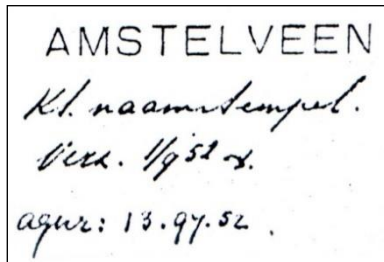 AMSTELVEEN
Kl. naamstempel.
Verz. 1/9 52
agur: 13.97.52.